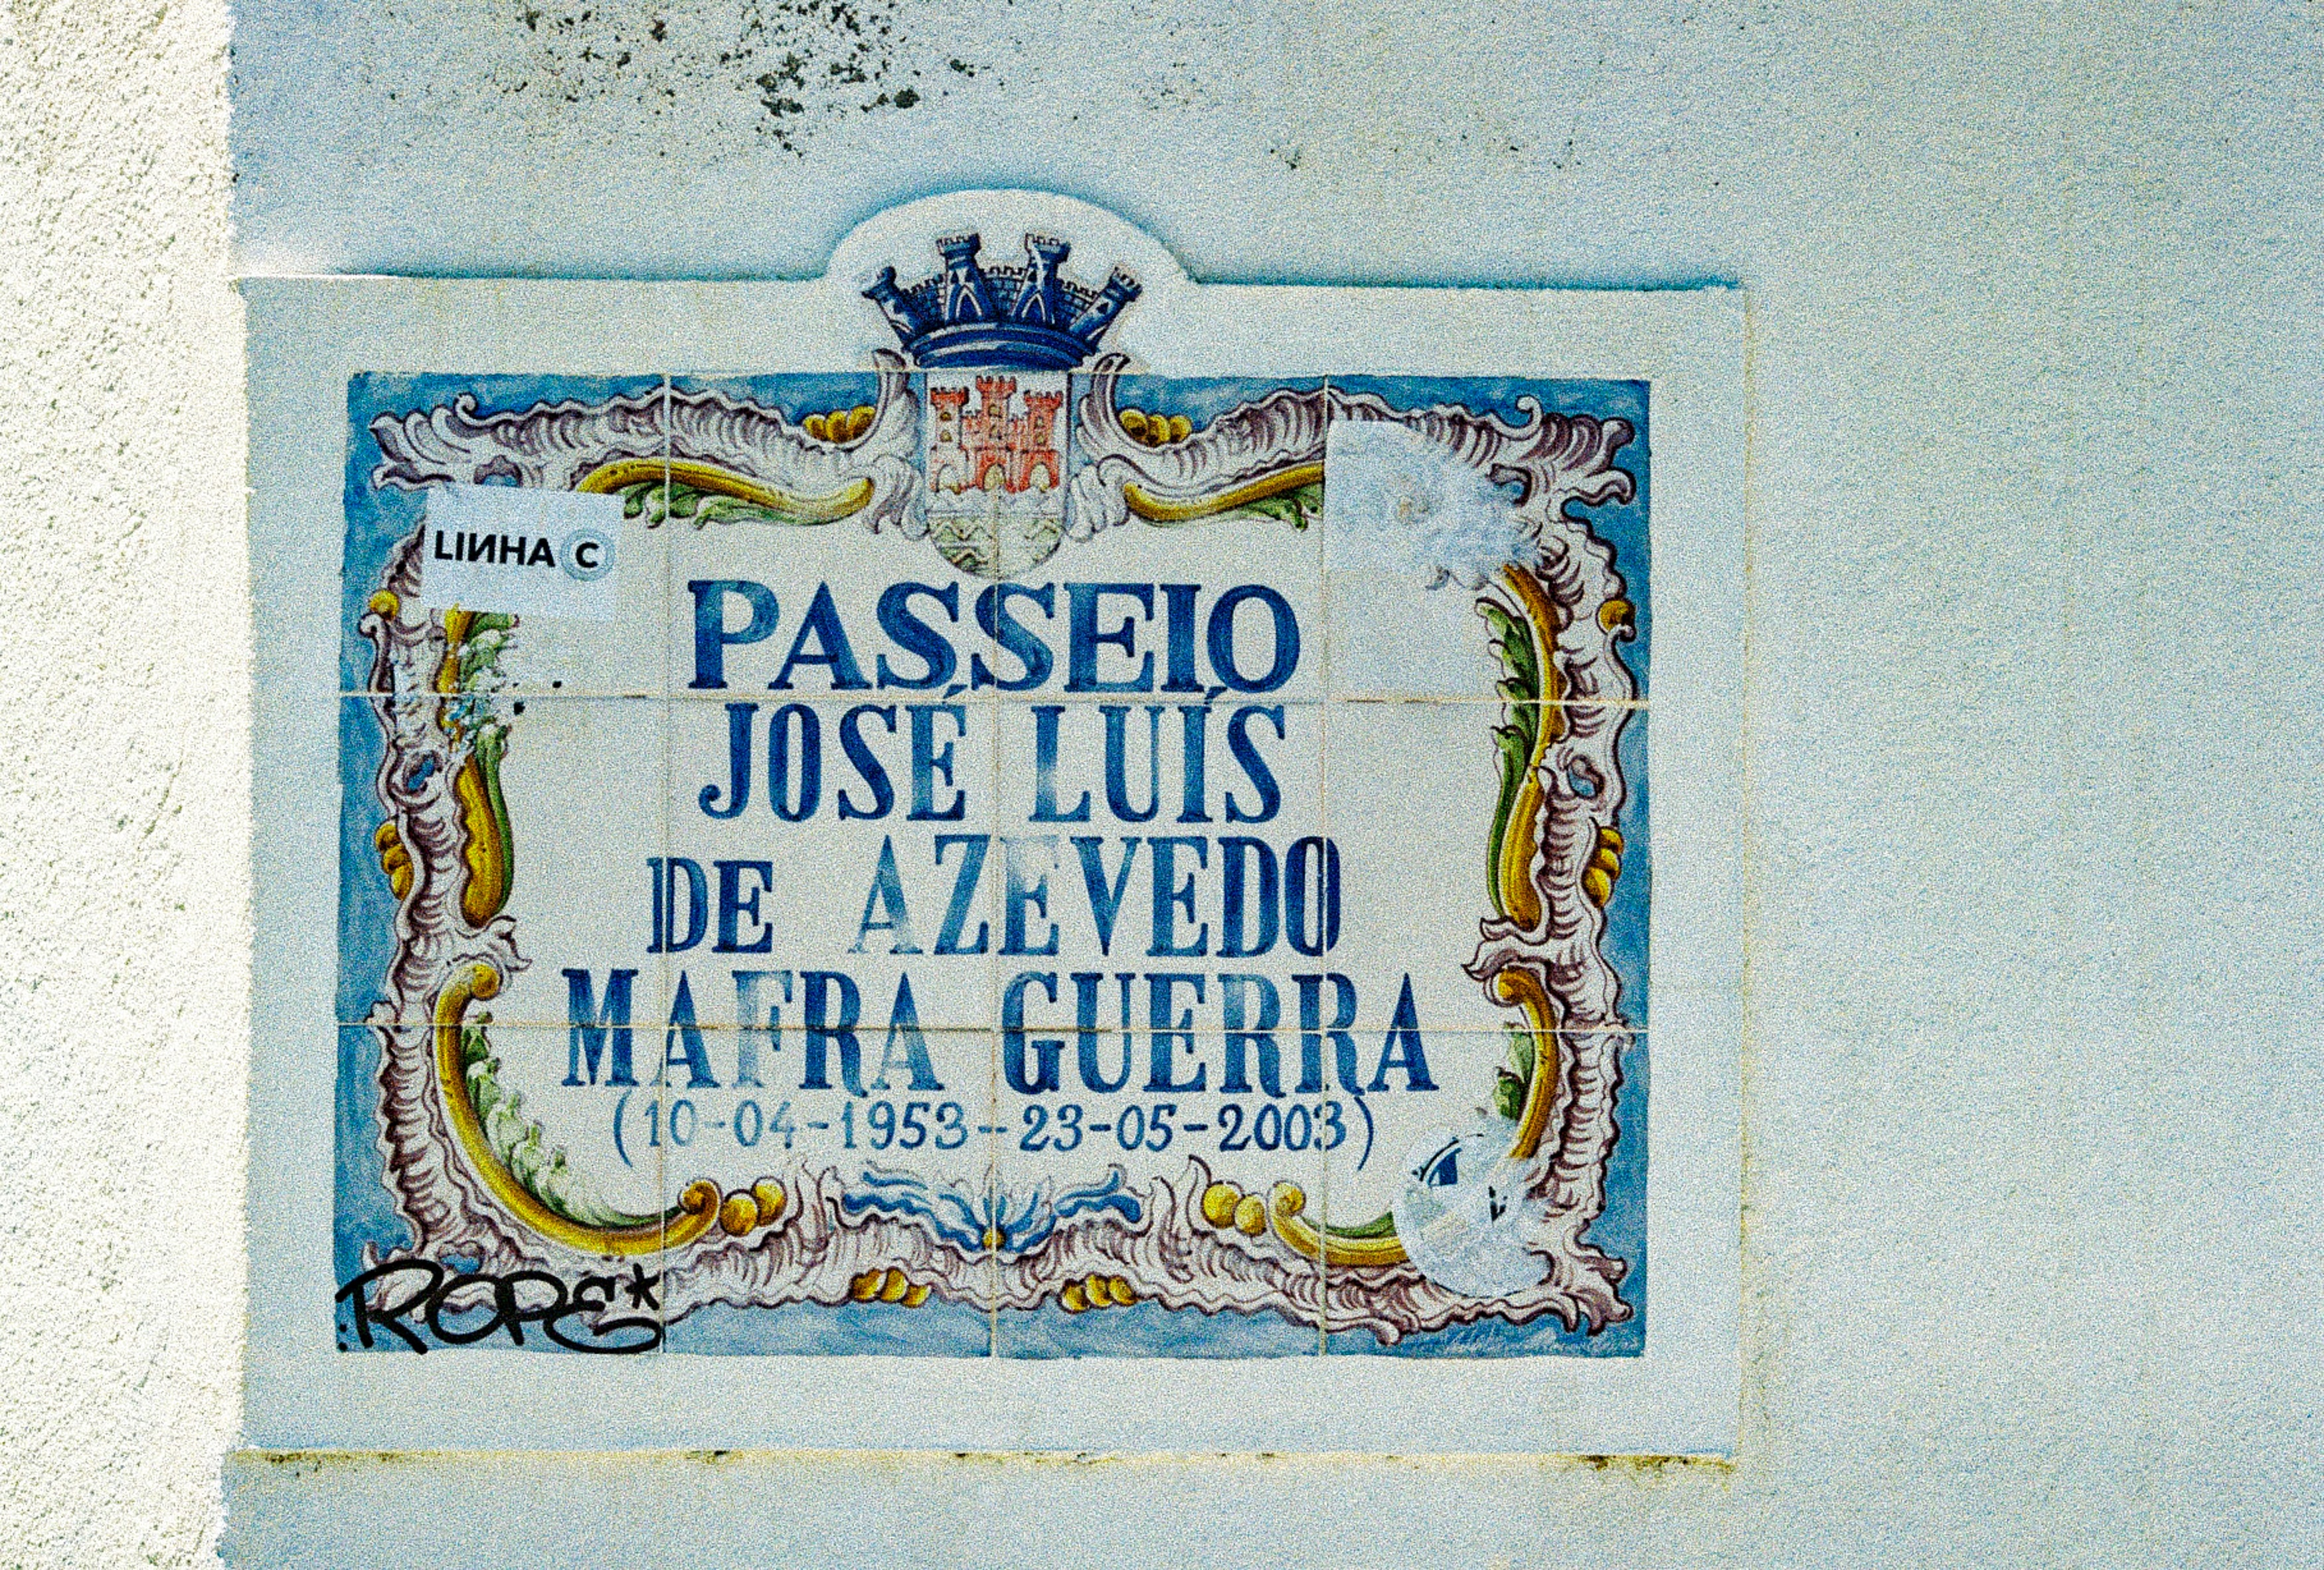 LIИHA C
PASSEIO
JOSÉ LUÍS
DE AZEVEDO
MAFRA GUERRA
(10-04-1953-23-05-2003)
ROPE*